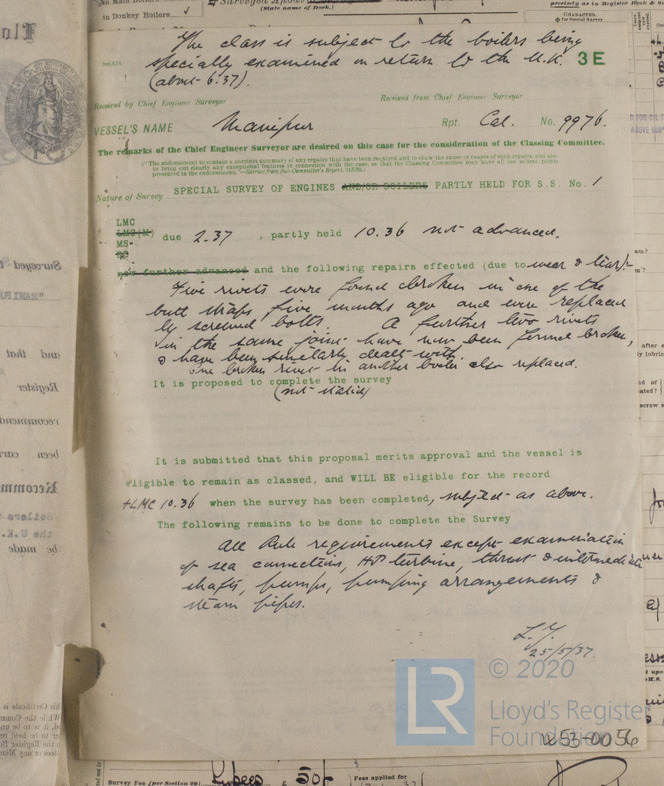 in Donkey Boilers
(State name of Dock.)
CHARACTER.
for Special Survey
The class is subject to the boilers being
specially examined on return to the U.K.
(about 6.37).
3E
Received by Chief Engineer Surveyor
Received from Chief Engineer Surveyor
VESSEL'S NAME Manipur Rpt. Cal. No. 9976.
The remarks of the Chief Engineer Surveyor are desired on this case for the consideration of the Classing Committee.
Nature of Survey SPECIAL SURVEY OF ENGINES AND/OR BOILERS PARTLY HELD FOR S.S. No. 1
LMC
LMC(M)
MS
due 2.37 , partly held 10.36 not advanced.
further advanced and the following repairs effected (due to wear & tear):-
Five rivets were found broken in one of the
butt straps five months ago and were replaced
by screwed bolts. A further two rivets
in the same joint have now been found broken,
& have been similarly dealt with.
One broken rivet in another boiler also replaced.
It is proposed to complete the survey
(not stated)
It is submitted that this proposal merits approval and the vessel is
eligible to remain as classed, and WILL BE eligible for the record
+LMC 10.36 when the survey has been completed, subject as above.
The following remains to be done to complete the Survey
All Rule requirements except examination
of sea connections, HP turbine, thrust & intermediate
shafts, pumps, pumping arrangements &
steam pipes.
25/5/37.
LR
© 2020
Lloyd's Register
Foundation
W53-0056
Survey Fee (per Section 29) Rupees 50/- Fees applied for